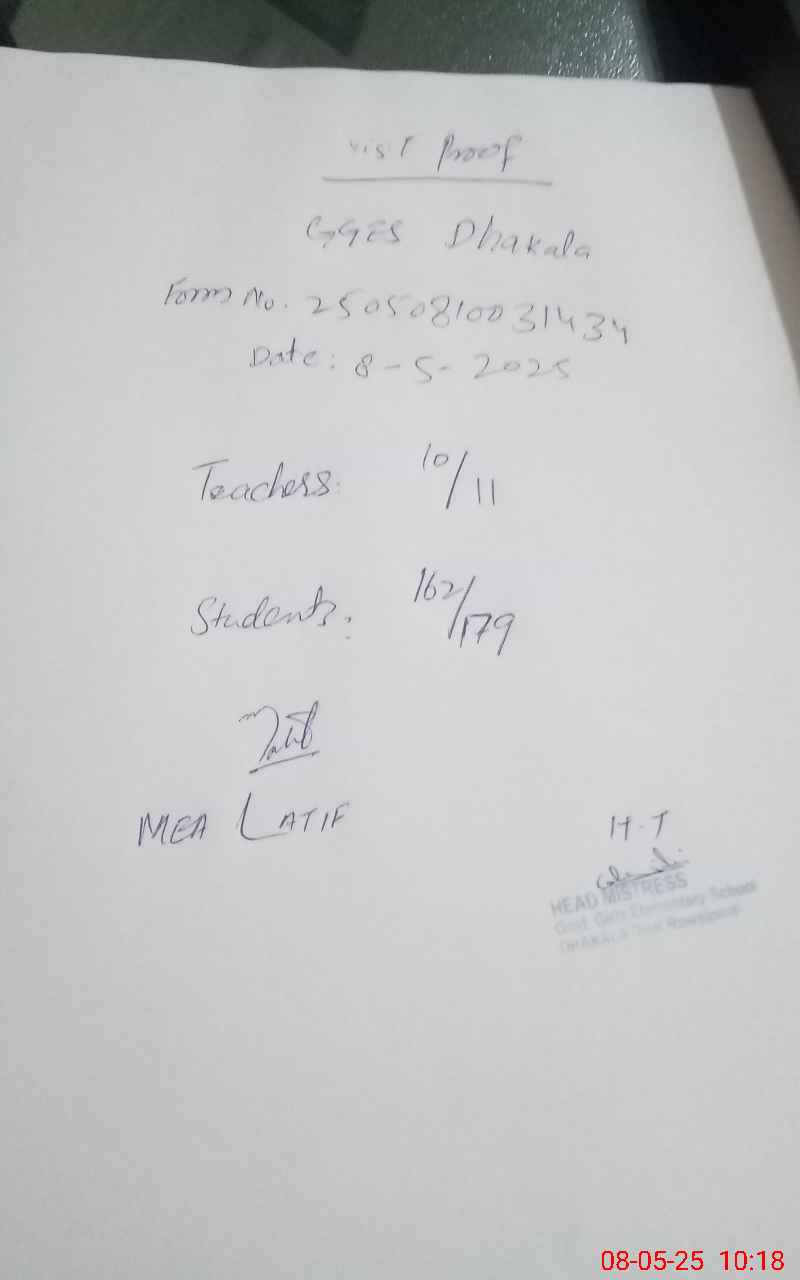 Visit Proof
GGES Dhakala
Form No. 25050810031434
Date: 8-5-2025
Teachers: 10/11
Students: 162/179
MEA LATIF
H-T
HEAD MISTRESS
Govt. Girls Elementary School
DHAKALA Rawalpindi
08-05-25 10:18